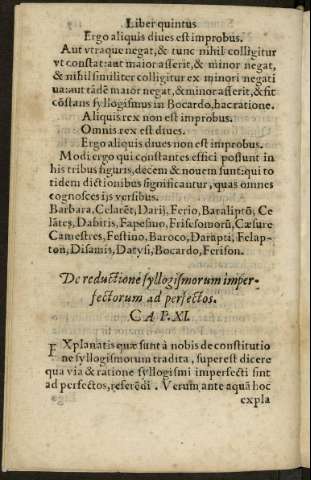 Liber quintus
Ergo aliquis diues est improbus.
Aut vtraque negat, & tunc nihil colligitur
vt constat: aut maior asserit, & minor negat,
& nihil similiter colligitur ex minori negati
ua: aut tādē maior negat, & minor asserit, & fit
cōstans syllogismus in Bocardo, hac ratione.
Aliquis rex non est improbus.
Omnis rex est diues.
Ergo aliquis diues non est improbus.
Modi ergo qui constantes effici possunt in
his tribus figuris, decem & nouem sunt: qui to
tidem dictionibus significantur, quas omnes
cognosces ijs versibus.
Barbara, Celarēt, Darij, Ferio, Baraliptō, Ce
lātes, Dabitis, Fapesmo, Frisesomorū, Cæsare
Camestres, Festino, Baroco, Darapti, Felap-
ton, Disamis, Datysi, Bocardo, Ferison.
De reductione syllogismorum imper-
fectorum ad perfectos.
CAP. XI.
EXplanatis quæ sunt à nobis de constitutio
ne syllogismorum tradita, superest dicere
qua via & ratione syllogismi imperfecti sint
ad perfectos, referēdi. Verum ante aquā hoc
expla